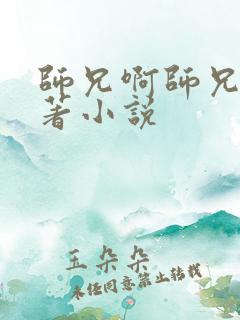 師兄啊師兄
著小說
玉朵朵
未经同意禁止转载